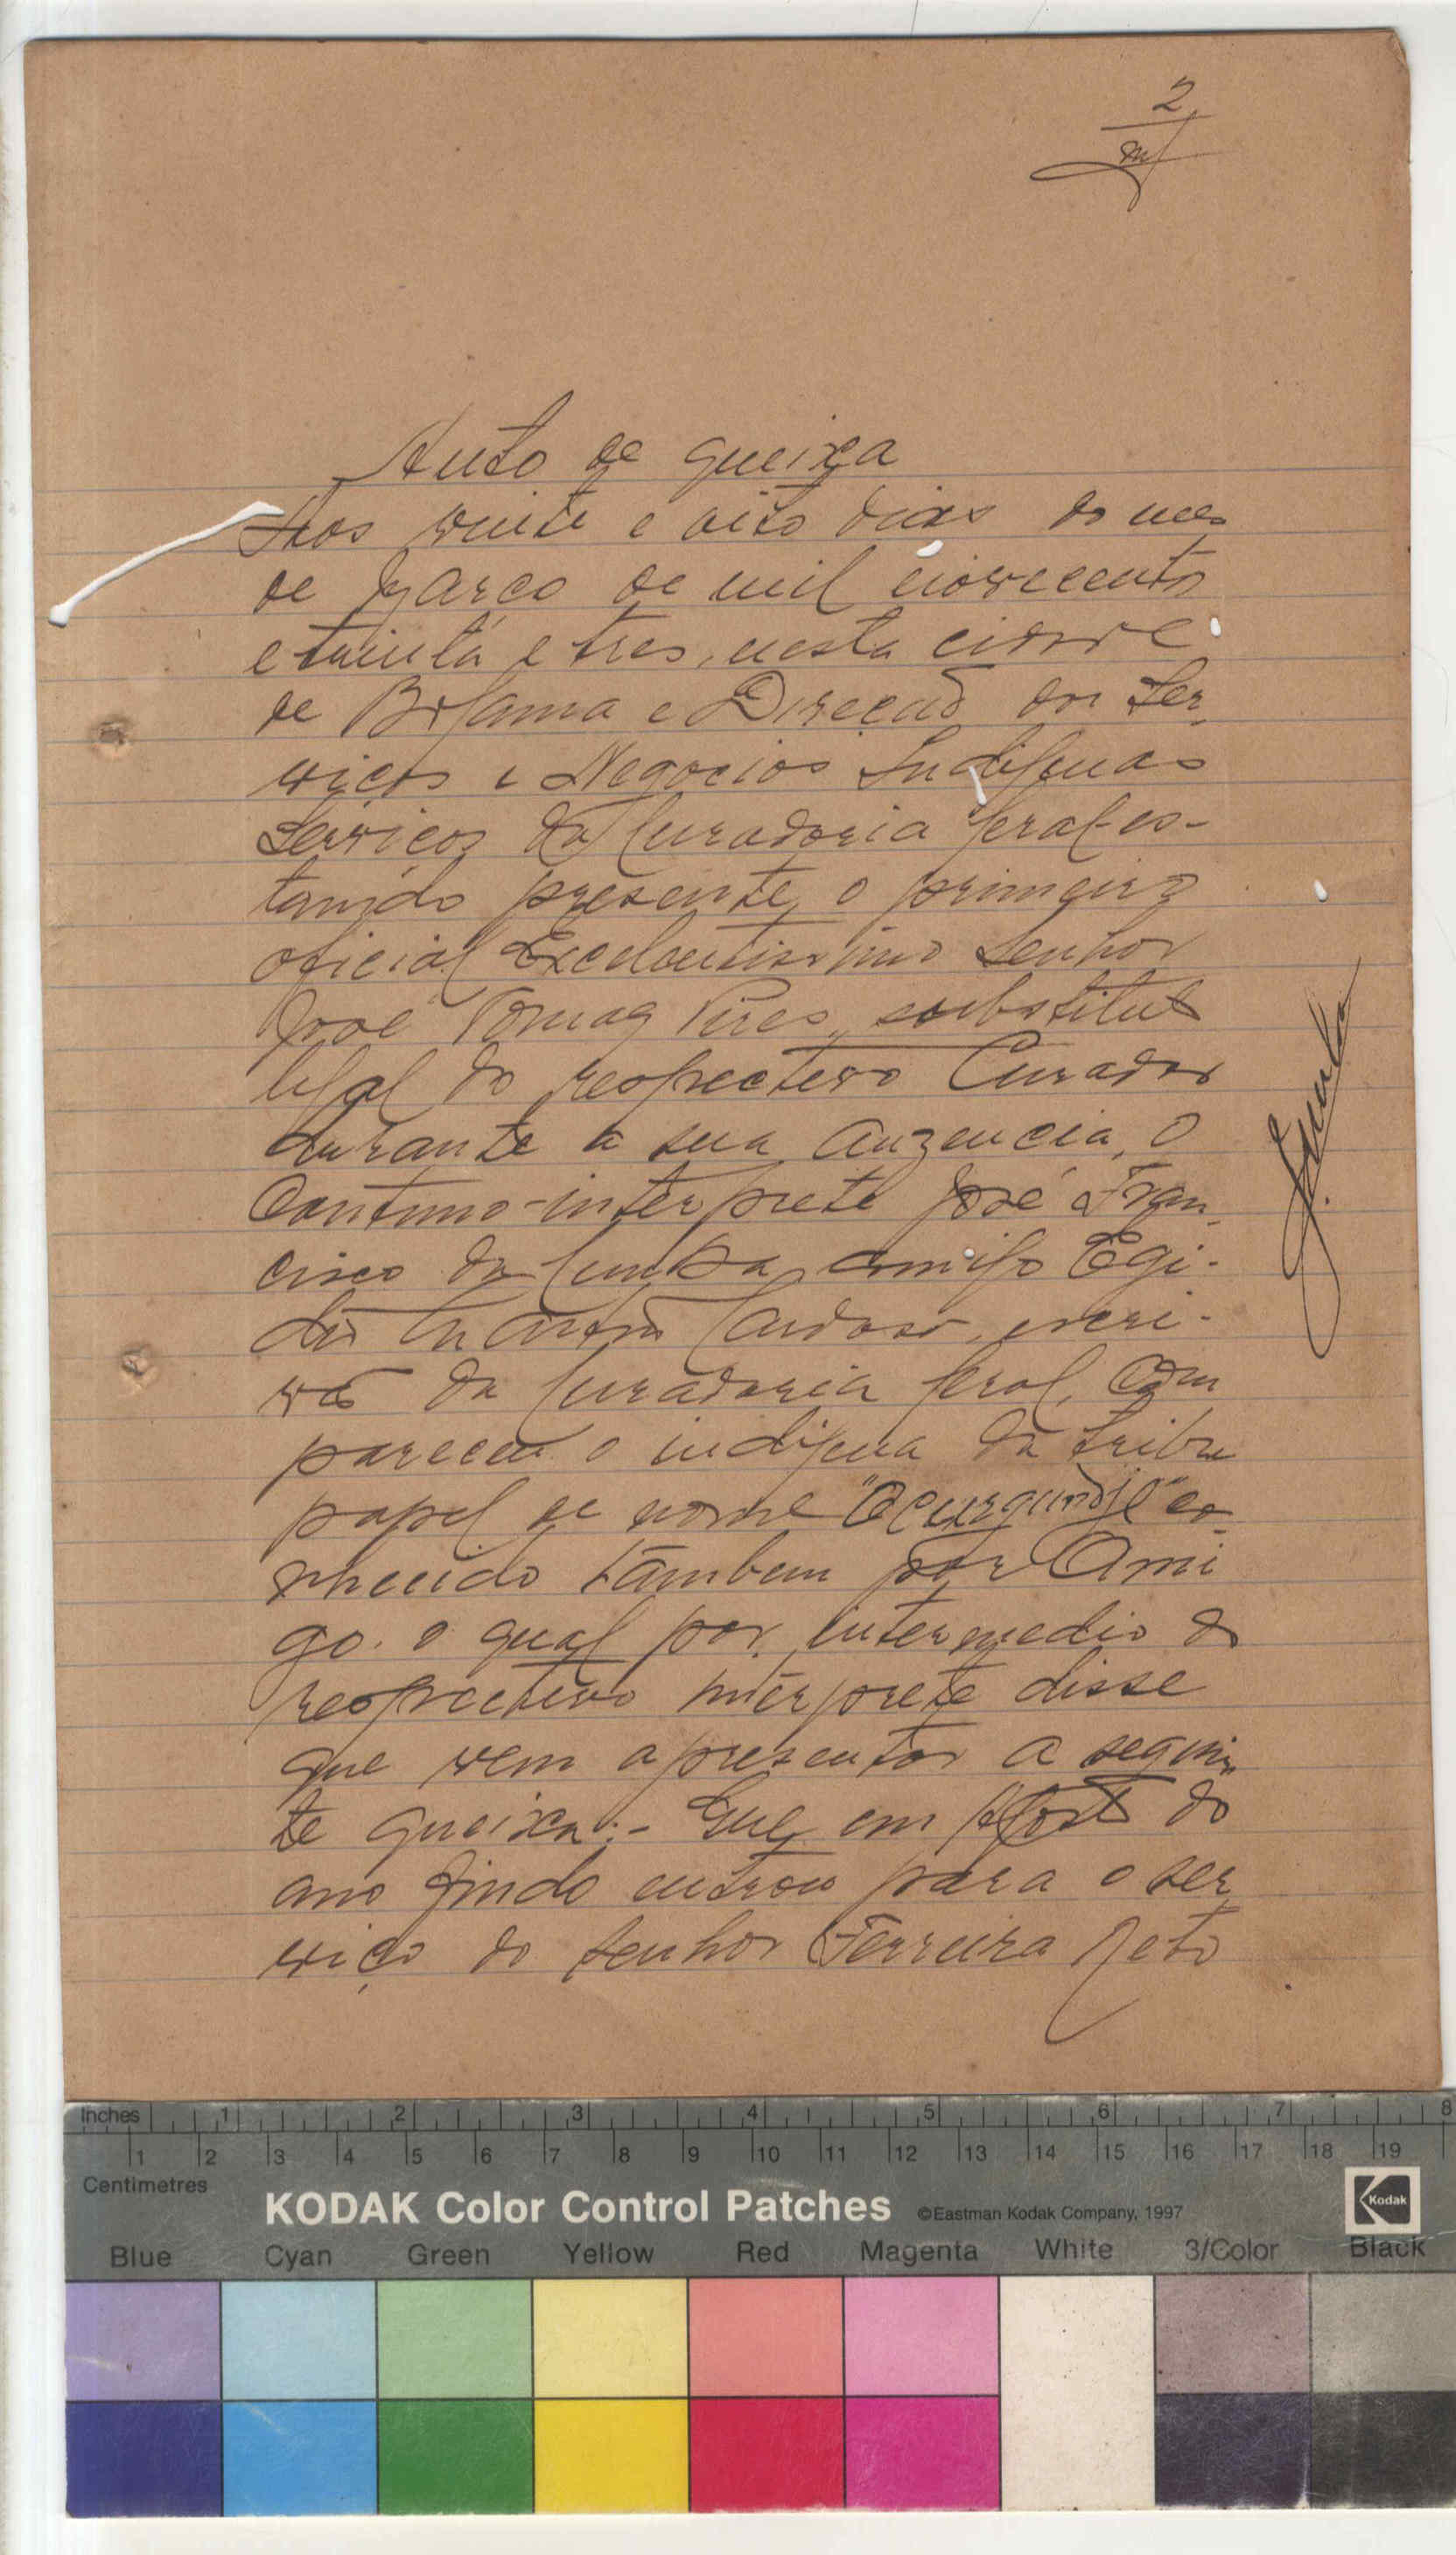 2
Auto de queixa
Aos vinte e oito dias do mes
de Março de mil novecentos
e trinta e tres, nesta cidade
de Bolama e Direcção dos Ser-
viços e Negocios Indigenas
Serviços da Curadoria Geral es-
tando presente, o primeiro
oficial Excelentissimo Senhor
José Tomaz Pires, substituto
legal do respectivo Curador
durante a sua auzencia, o
Contínuo-interprete José Fran-
cisco da Cunha, comigo Egi-
dio Martins Cardoso, escri-
vão da Curadoria Geral, com
pareceu o indigena da tribu
papel de nome co-
nhecido também por Ami
go. o qual por intermedio do
respectivo interprete disse
que vem apresentar a seguin-
te queixa:- Que em Agosto do
ano findo entrou para o ser
viço do Senhor Ferreira Neto
J. Cunha
Inches 1 2 3 4 5 6 7 8
1 2 3 4 5 6 7 8 9 10 11 12 13 14 15 16 17 18 19
Centimetres
KODAK Color Control Patches ©Eastman Kodak Company, 1997 Kodak
Blue Cyan Green Yellow Red Magenta White 3/Color Black